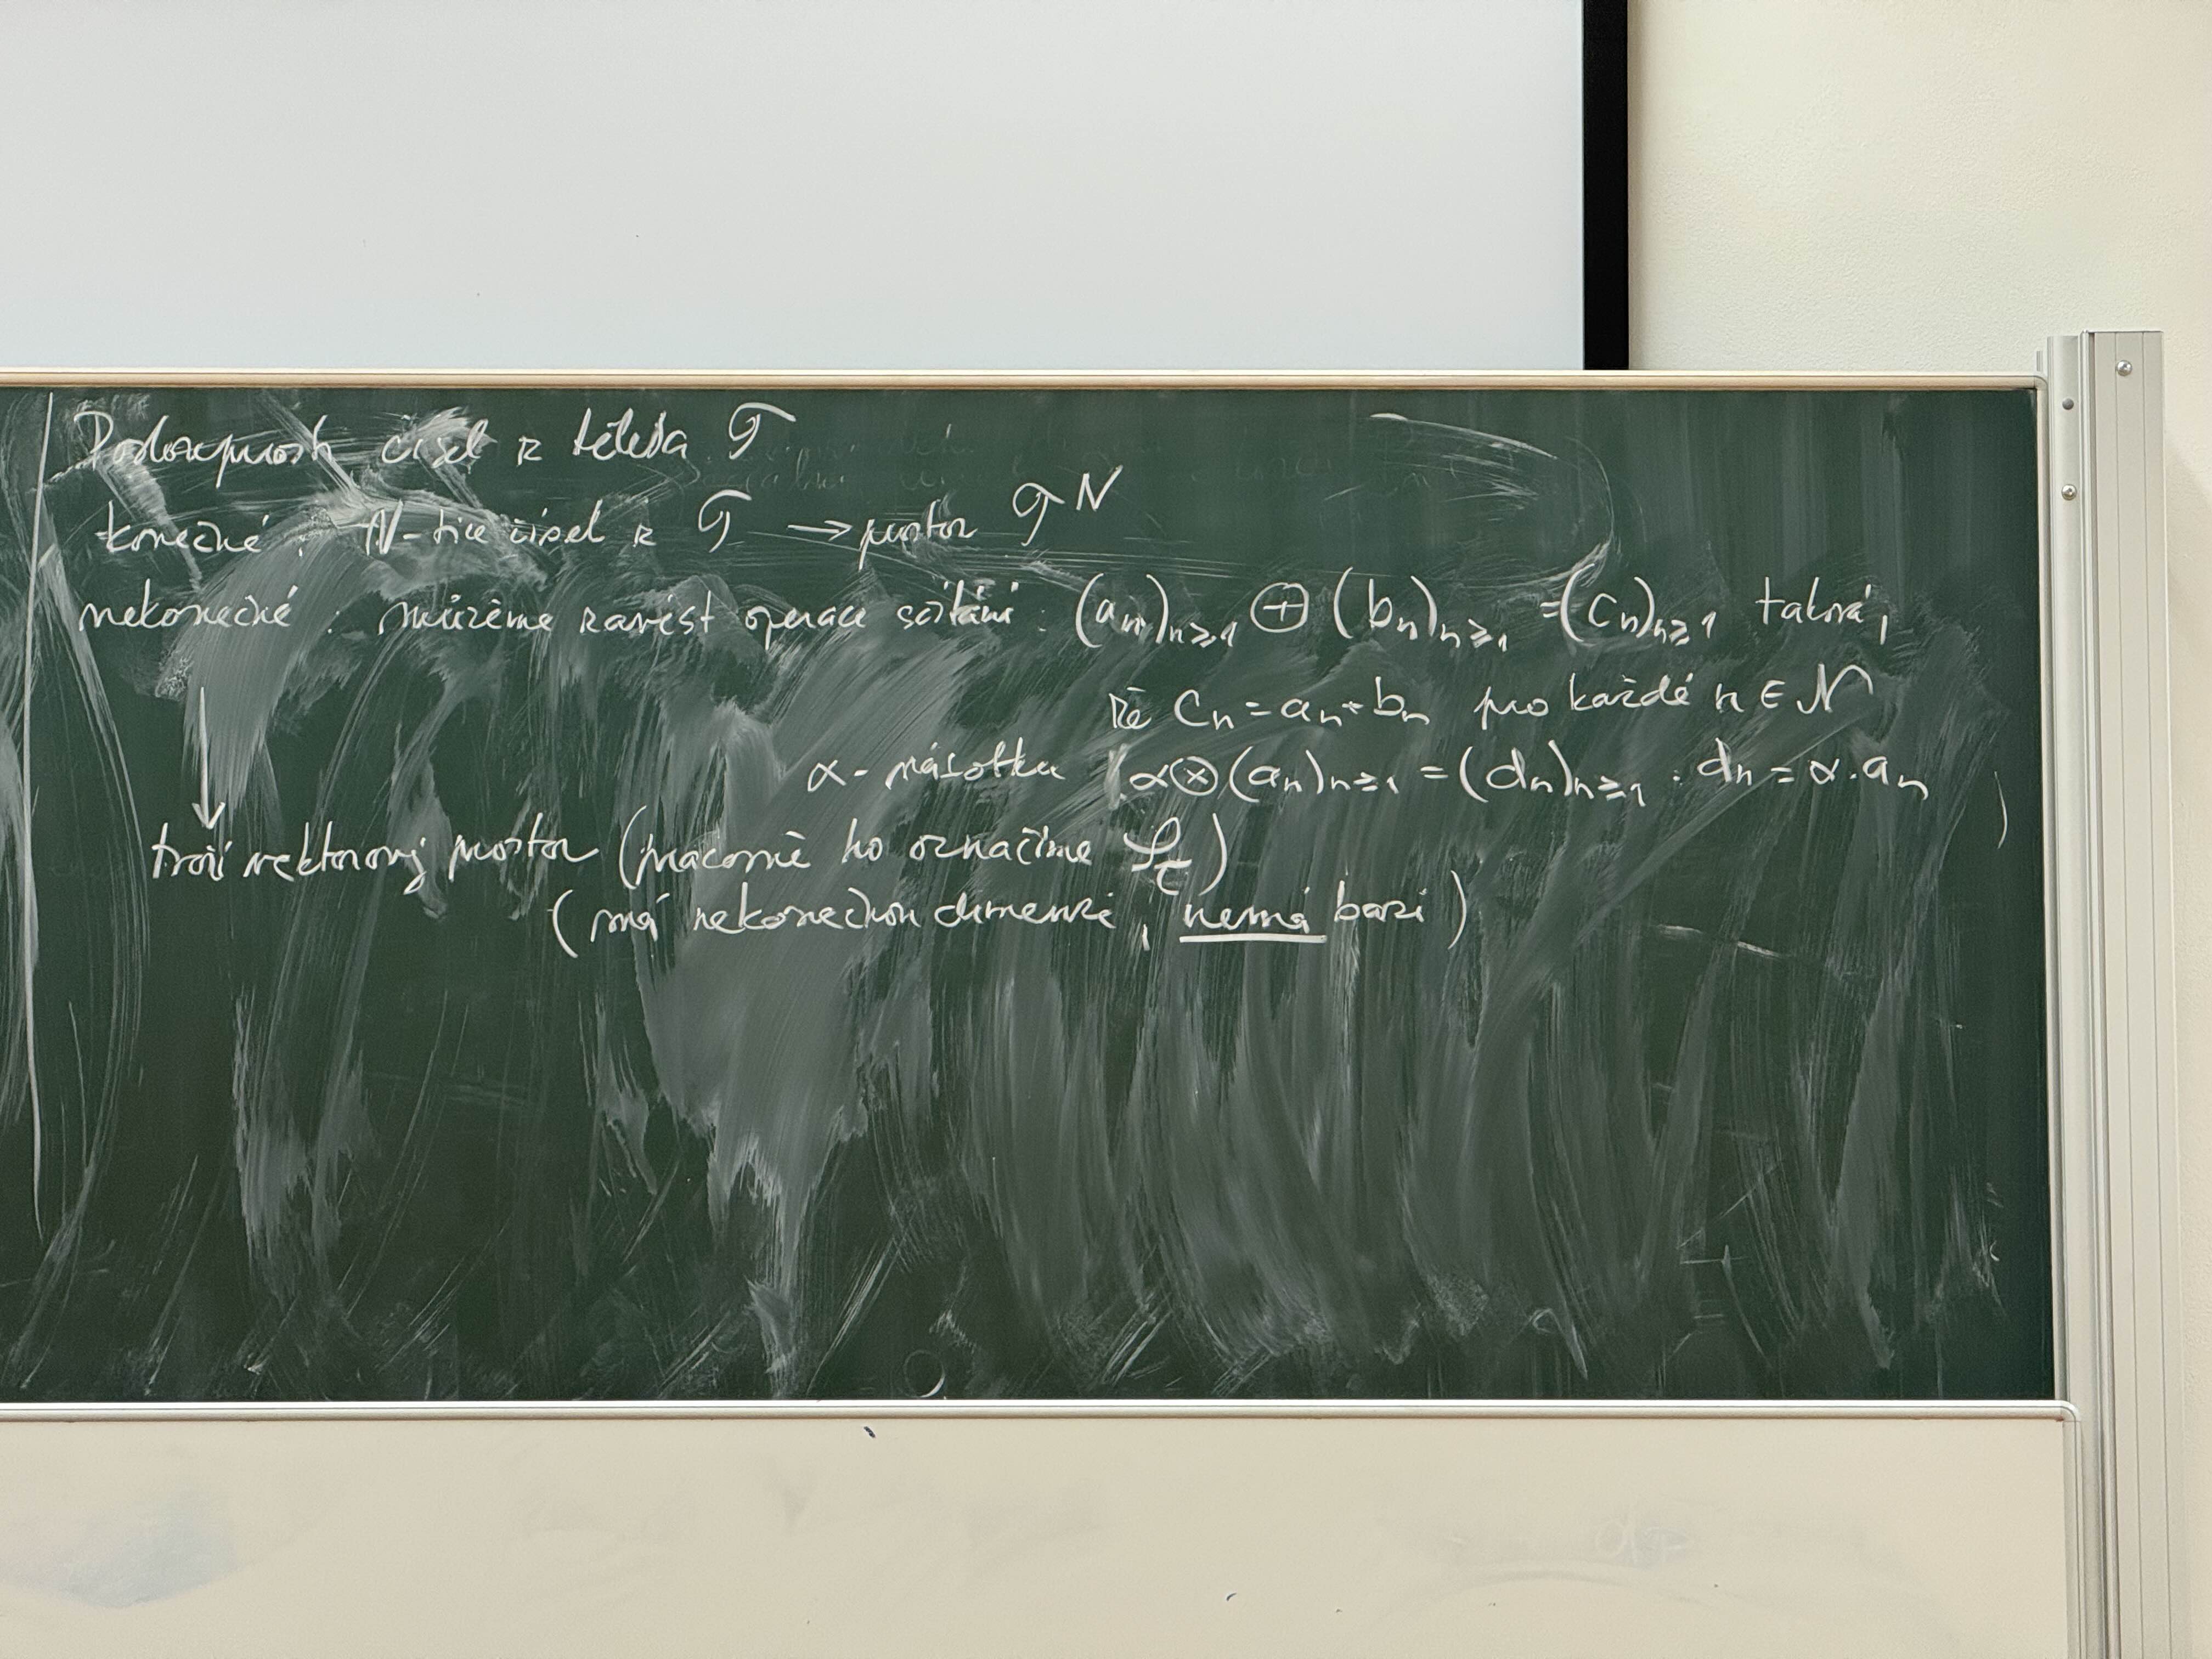 Posloupnosti čísel z tělesa T
konečné : N-tice čísel z T → prostor T^N
nekonečné : můžeme zavést operace sčítání : (aₙ)ₙ≥₁ ⊕ (bₙ)ₙ≥₁ = (cₙ)ₙ≥₁ taková,
že cₙ = aₙ + bₙ pro každé n ∈ N
α-násobku (α⊗(aₙ)ₙ≥₁ = (dₙ)ₙ≥₁ : dₙ = α.aₙ )
tvoří vektorový prostor (pracovně ho označíme 𝒮_T)
(má nekonečnou dimenzi, nemá bazi)